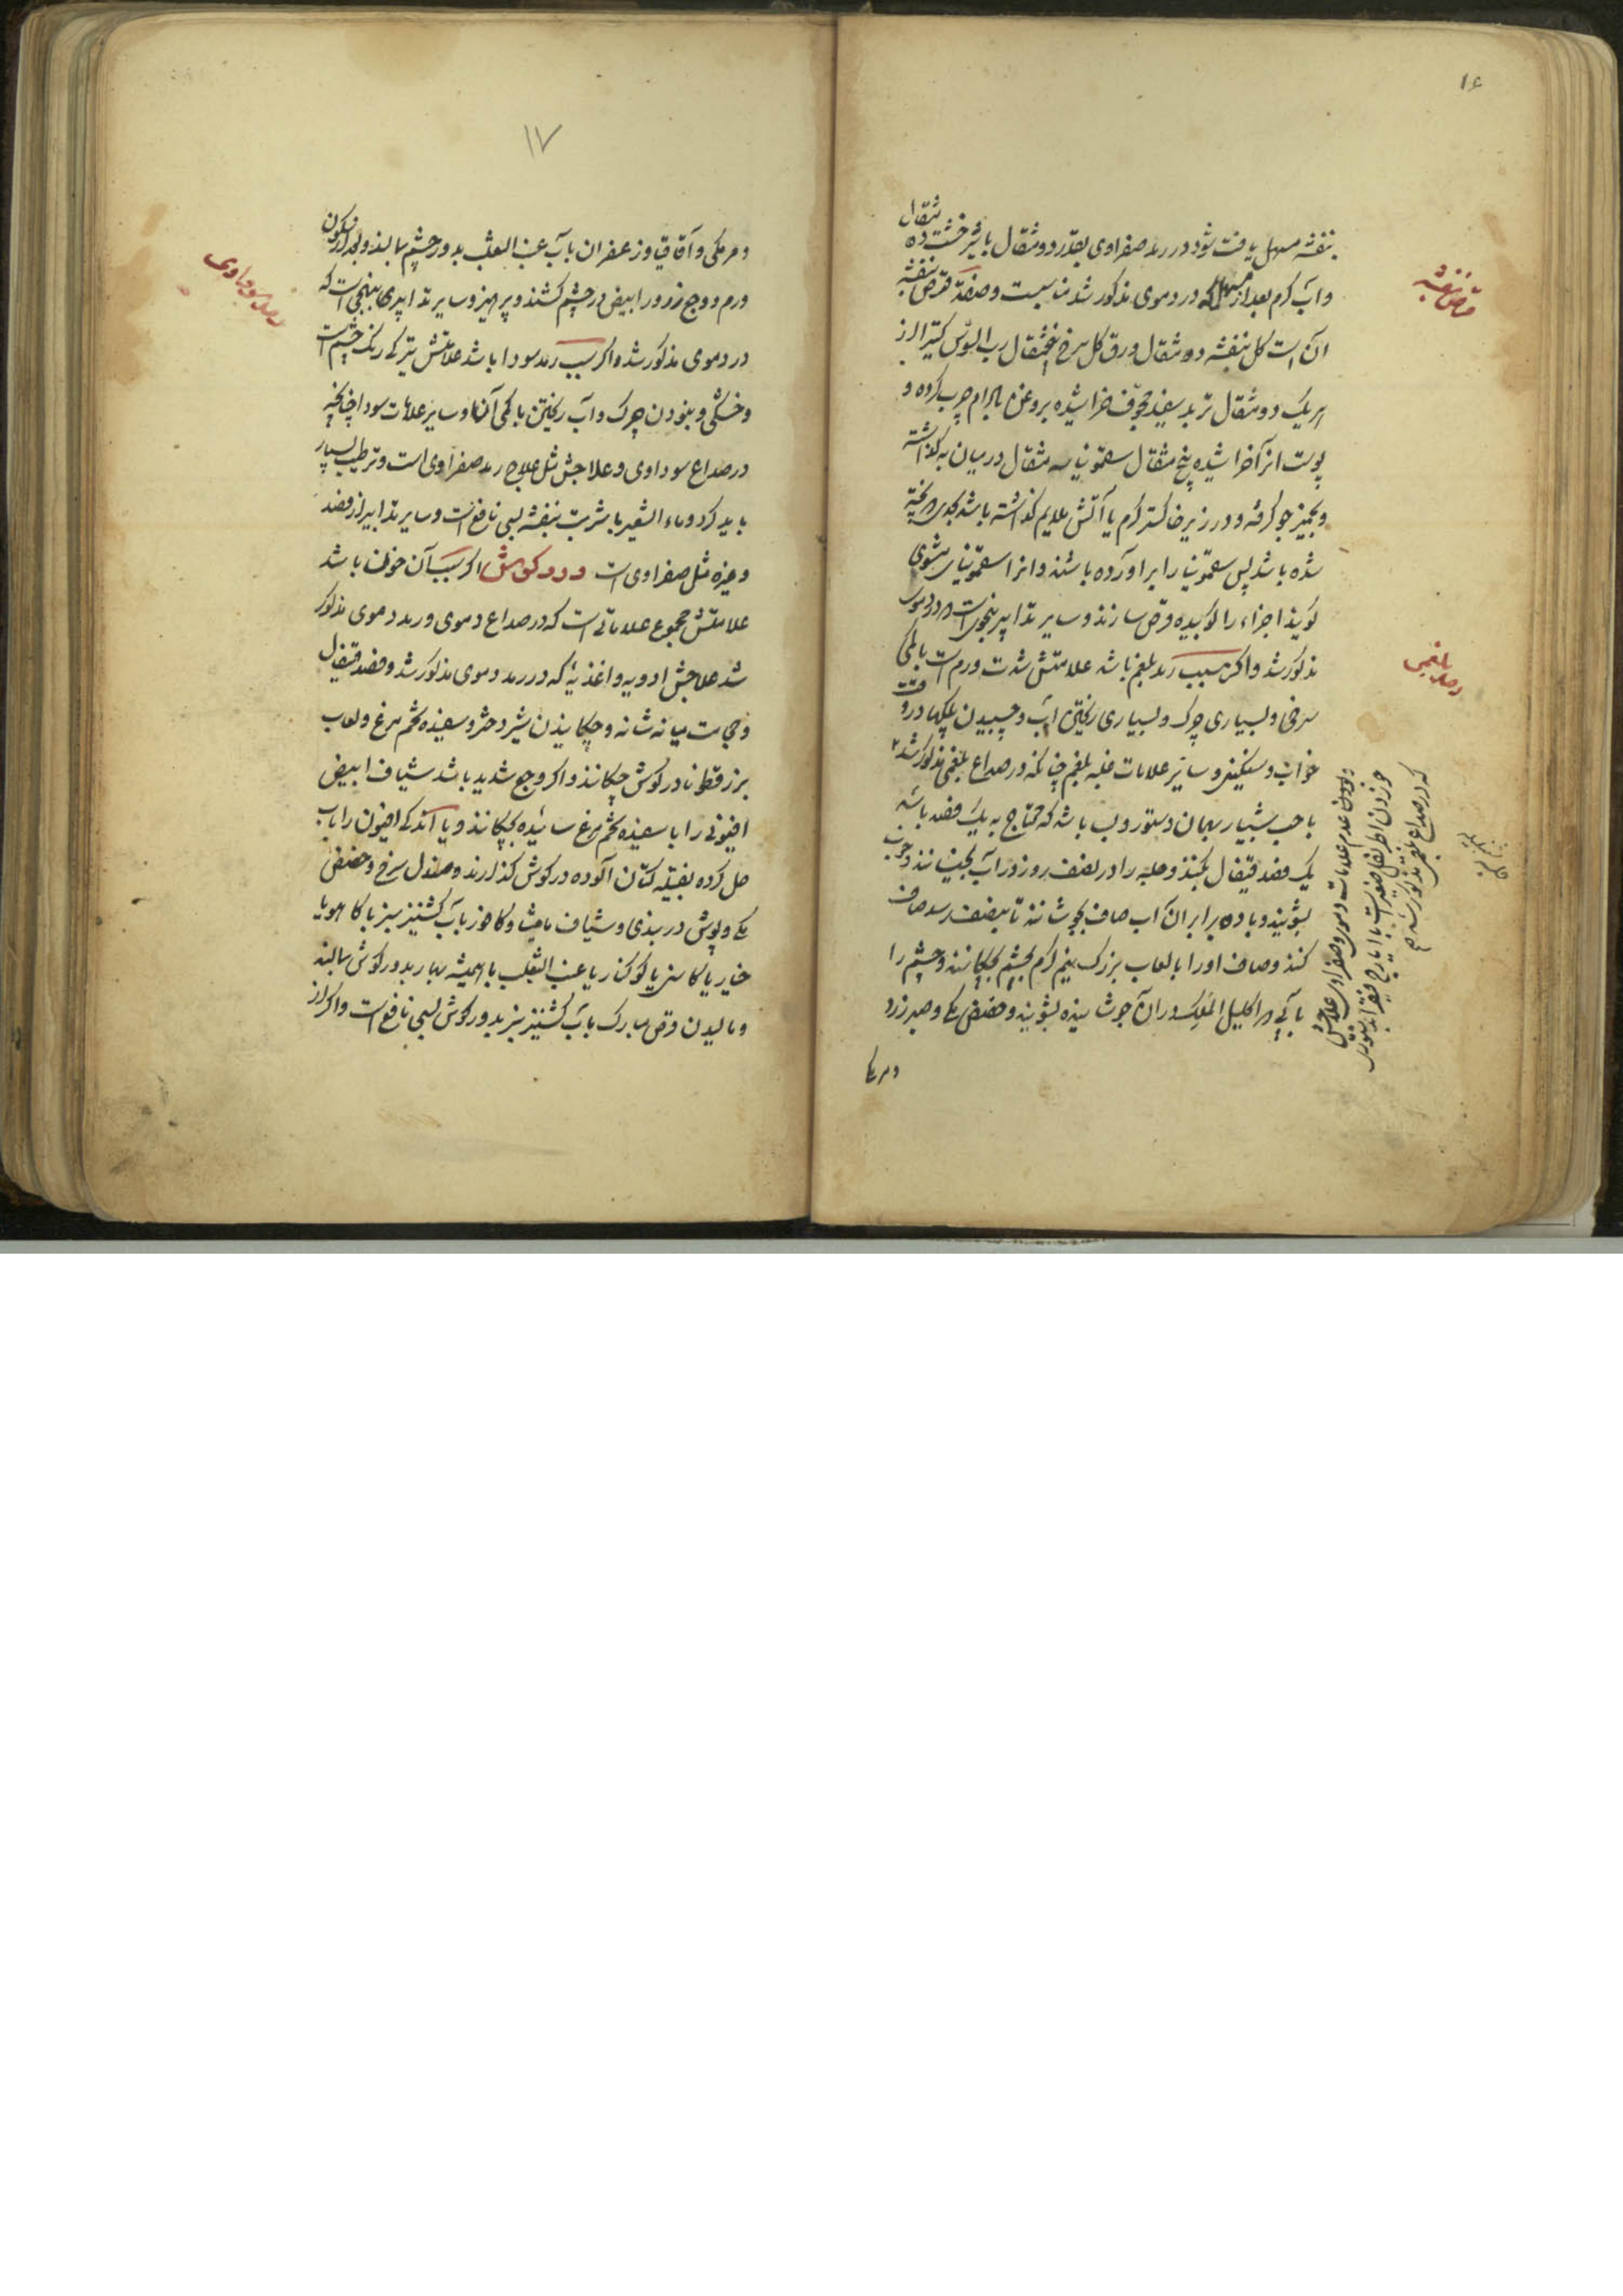 ۱۶
بنفشه مسهل یافت شود در رمد صفراوی بقدر دو مثقال با شیرخشت ده مثقال
و آب گرم بعد از مسهلی که در دموی مذکور شد مناسبست و صفة قرص بنفشه
قرص بنفشه
آن است گل بنفشه ده مثقال ورق گل سرخ پنجمثقال رب السوس کتیرا از
هر یک دو مثقال تربد سفید مجوف خراشیده بروغن بادام چرب کرده و
پوست از آن خراشیده پنج مثقال سقمونیا سه مثقال در میان به گذاشته
و بخمیر جو گرفته و در زیر خاکستر گرم یا آتش ملایم گذاشته باشد بحدی که پخته
شده باشد پس سقمونیا را برآورده باشند و انرا سقمونیای مشوی
گویند اجزاء را کوبیده قرص سازند و سایر تدابیر بنحوی است که در دموی
مذکور شد و اگر سبب رمد بلغم باشد علامتش شدت ورم است با کمی
رمد بلغمی
سرخی و بسیاری چرک و بسیاری ریختن آب و چسبیدن پلکها در وقت
خواب و سنگینی و سایر علامات غلبه بلغم چنانکه در صداع بلغمی مذکور شد
با حب شبیار بهمان دستور و بسا باشد که محتاج به یک فصد باشد
یک فصد قیفال بکنند و حلبه را در نصف روز در آب بخیسانند و خوب
بشویند و با ده برابر آن آب صاف بجوشانند تا بنصف رسد صاف
کنند و صاف او را با لعاب بزرک نیم گرم بچشم بچکانند و چشم را
با آبی که اکلیل الملک در آن جوشانیده بشویند و حضض مکی و صبر زرد
و مر مکی
و بودن عدم علامات دموی و صفراوی علاجش
خوردن اطریفل صغیر است با ایارج فیقرا بدستوری
که در صداع بلغمی مذکور شد صح
۱۷
و مر مکی و آقاقیا و زعفران با آب عنب الثعلب بدور چشم بمالند و بعد از سکون
ورم و وجع ذرور ابیض در چشم کشند و پرهیز و سایر تدابیر بنهجی است که
رمد سوداوی
در دموی مذکور شد و اگر سبب رمد سودا باشد علامتش تیرگی رنگ چشم است
و خشکی و نبودن چرک و آب ریختن با کمی آنها و سایر علامات سودا چنانچه
در صداع سوداوی و علاجش مثل علاج رمد صفراوی است و ترطیب بسیار
باید کرد و ماء الشعیر با شربت بنفشه بسی نافع است و سایر تدابیر از فصد
و غیره مثل صفراوی است درد گوش اگر سبب آن خون باشد
علامتش مجموع علاماتی است که در صداع دموی و رمد دموی مذکور
شد علاجش ادویه و اغذیه که در رمد دموی مذکور شد و فصد قیفال
و حجامت میانه شانه و چکانیدن شیر دختر و سفیده تخم مرغ و لعاب
بزرقطونا در گوش چکانند و اگر وجع شدید باشد شیاف ابیض
افیونی را با سفیده تخم مرغ سائیده بچکانند و یا اندکی افیون را با آب
حل کرده بفتیله کتان آلوده در گوش گذارند و صندل سرخ و حضض
مکی و پوش دربندی و شیاف مامیثا و کافور با آب گشنیز سبز یا کاهو یا
خیار یا کاسنی یا کوکنار یا عنب الثعلب یا همیشه بهار بدور گوش بمالند
و مالیدن قرص مبارک با آب گشنیز سبز بدور گوش بسی نافع است و اگر از